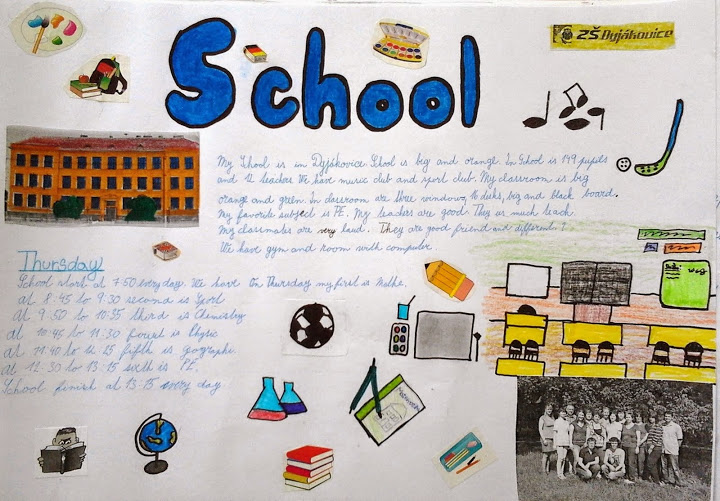 School
ZŠ Dyjákovice
My School is in Dyjákovice. School is big and orange. In School is 149 pupils
and 12 teachers. We have music club and sport club. My classroom is big
orange and green. In classroom are three windows, 16 desks, big and black board.
My favorite subject is PE. My teachers are good They us much teach.
My classmates are very loud. They are good friend and different :)
We have gym and room with computer.
Thursday
School start at 7:50 every day. We have On Thursday my first is Maths.
at 8:45 to 9:30 second is
at 9:50 to 10:35 third is Chemistry
at 10:45 to 11:30 fourt is Physic
at 11:40 to 12:25 fifth is
at 12:30 to 13:15 sixth is PE.
School finish at 13:15 every day